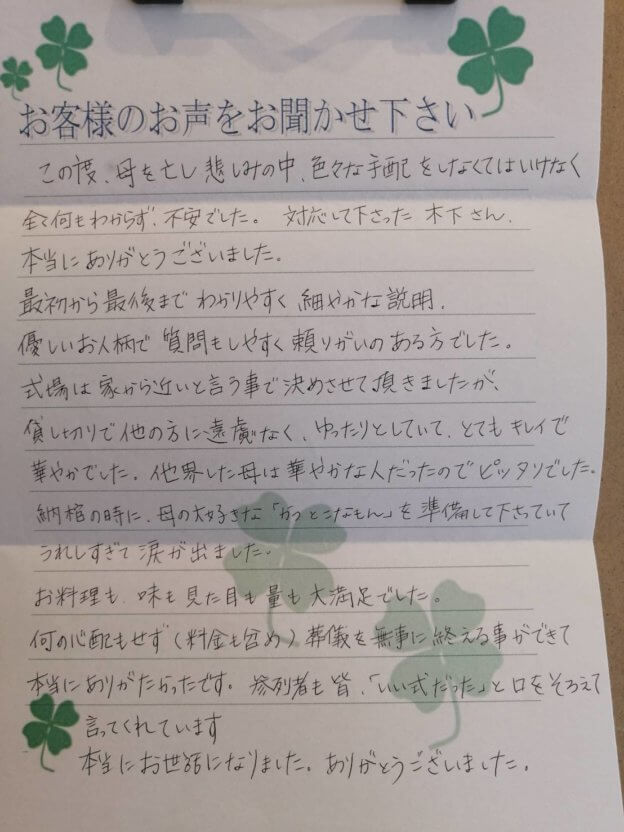 お客様のお声をお聞かせ下さい
この度、母を亡し悲しみの中、色々な手配をしなくてはいけなく
全て何もわからず、不安でした。 対応して下さった 木下さん、
本当にありがとうございました。
最初から最後まで わかりやすく、細やかな説明、
優しいお人柄で 質問もしやすく頼りがいのある方でした。
式場は家から近いと言う事で決めさせて頂きましたが、
貸し切りで他の方に遠慮なく、ゆったりとしていて、とてもキレイで
華やかでした。他界した母は華やかな人だったのでピッタリでした。
納棺の時に、母の大好きな「かつとこなもん」を準備して下さっていて
うれしすぎて涙が出ました。
お料理も、味も見た目も量も大満足でした。
何の心配もせず(料金も含め)葬儀を無事に終える事ができて
本当にありがたかったです。参列者も皆、「いい式だった」と口をそろえて
言ってくれています
本当にお世話になりました。ありがとうございました。